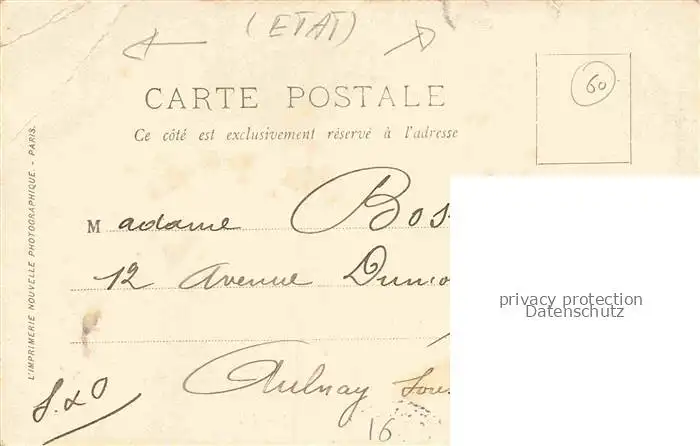 (ETAT)
60
CARTE POSTALE
Ce côté est exclusivement réservé à l'adresse
Madame Bos
12 Avenue Dumo
Aulnay Sous
S. & O
16
L'IMPRIMERIE NOUVELLE PHOTOGRAPHIQUE. - PARIS.
privacy protection
Datenschutz